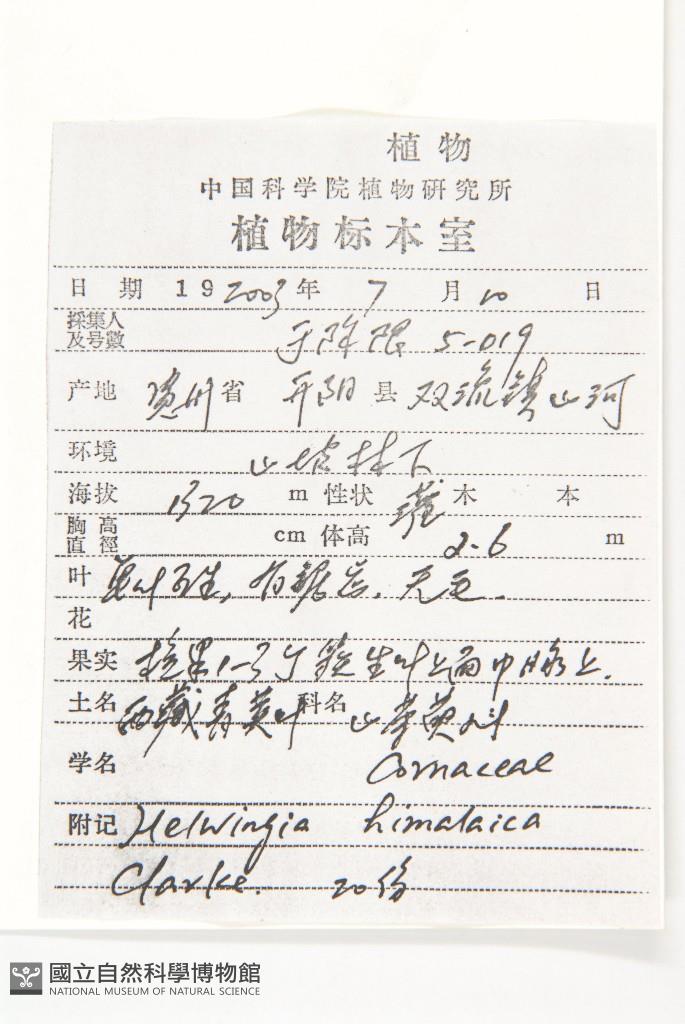 植物
中国科学院植物研究所
植物标本室
日期 19 2003年 7 月 10 日
採集人及号數 5-019
产地 贵州省 开阳县 双流镇山河
环境 山坡林下
海拔 1320 m 性状 灌木 本
胸高直徑 cm 体高 2-6 m
叶 单叶互生,有锯齿.无毛.
花
果实 核果1-3 生叶上面中脉上.
土名 西藏青荚叶 科名 山茱萸科
学名 Cornaceae
附记 Helwingia himalaica
Clarke. 20份
國立自然科學博物館
NATIONAL MUSEUM OF NATURAL SCIENCE